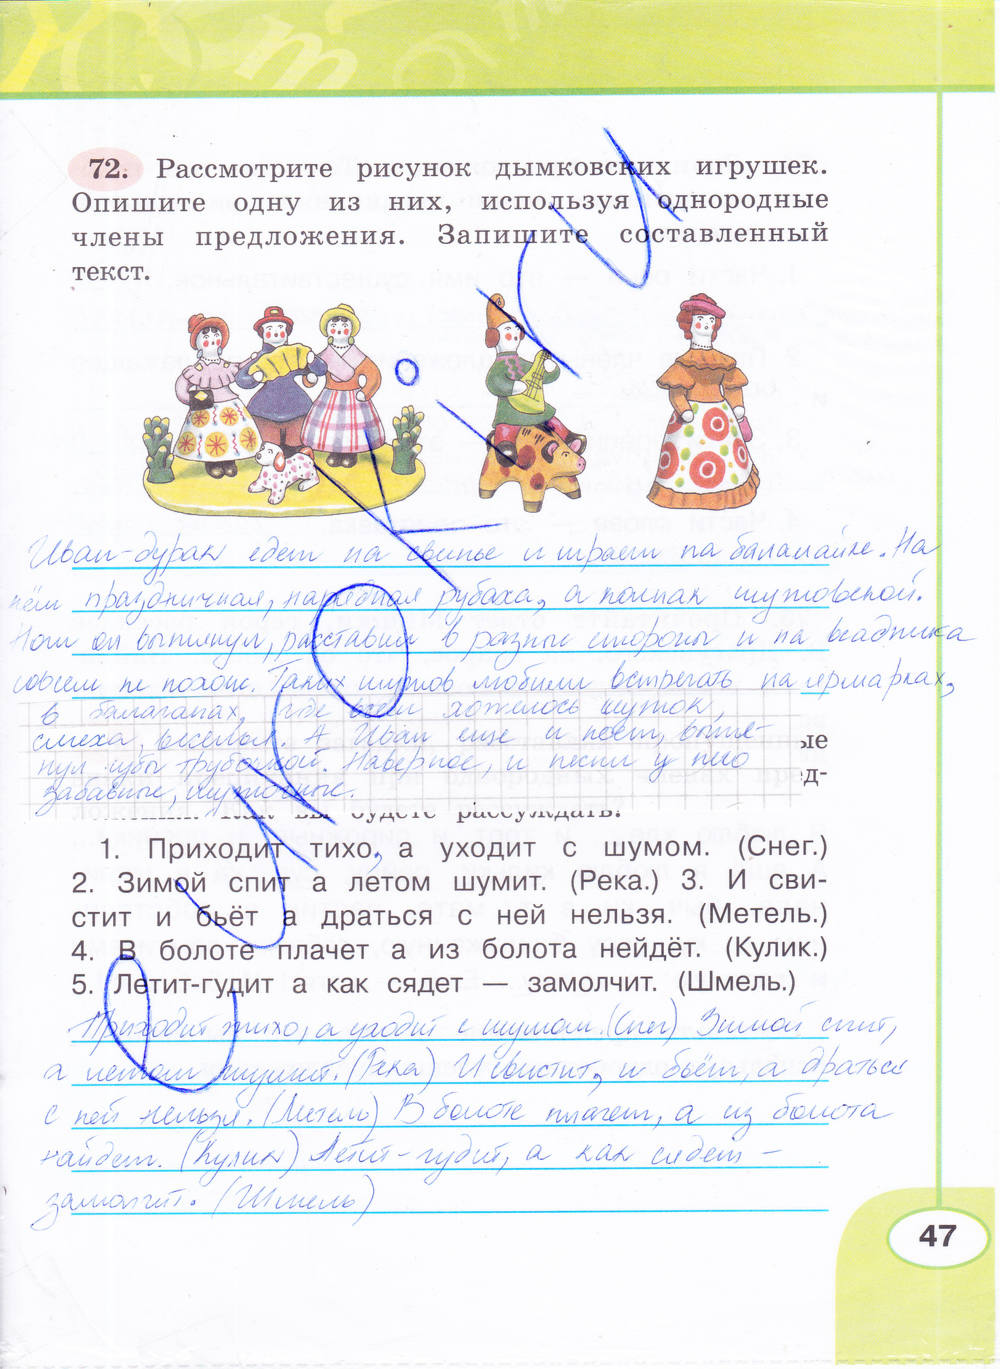 72. Рассмотрите рисунок дымковских игрушек.
Опишите одну из них, используя однородные
члены предложения. Запишите составленный
текст.
Иван-дурак едет на свинье и играет на балалайке. На
нём праздничная, нарядная рубаха, а колпак шутовской.
Ноги он вытянул, расставил в разные стороны и на всадника
совсем не похож. Таких шутов любили встречать на ярмарках,
в балаганах, где всем хотелось шуток,
смеха, веселья. А Иван ещё и поёт, вытя-
нул губы трубочкой. Наверное, и песни у него
ые
забавные, шуточные.
ед-
будете рассуждать?
1. Приходит тихо, а уходит с шумом. (Снег.)
2. Зимой спит а летом шумит. (Река.) 3. И сви-
стит и бьёт а драться с ней нельзя. (Метель.)
4. В болоте плачет а из болота нейдёт. (Кулик.)
5. Летит-гудит а как сядет — замолчит. (Шмель.)
Приходит тихо, а уходит с шумом. (Снег) Зимой спит,
а летом шумит. (Река) И свистит, и бьёт, а драться
с ней нельзя. (Метель) В болоте плачет, а из болота
найдет. (Кулик) Летит-гудит, а как сядет –
замолчит. (Шмель)
47